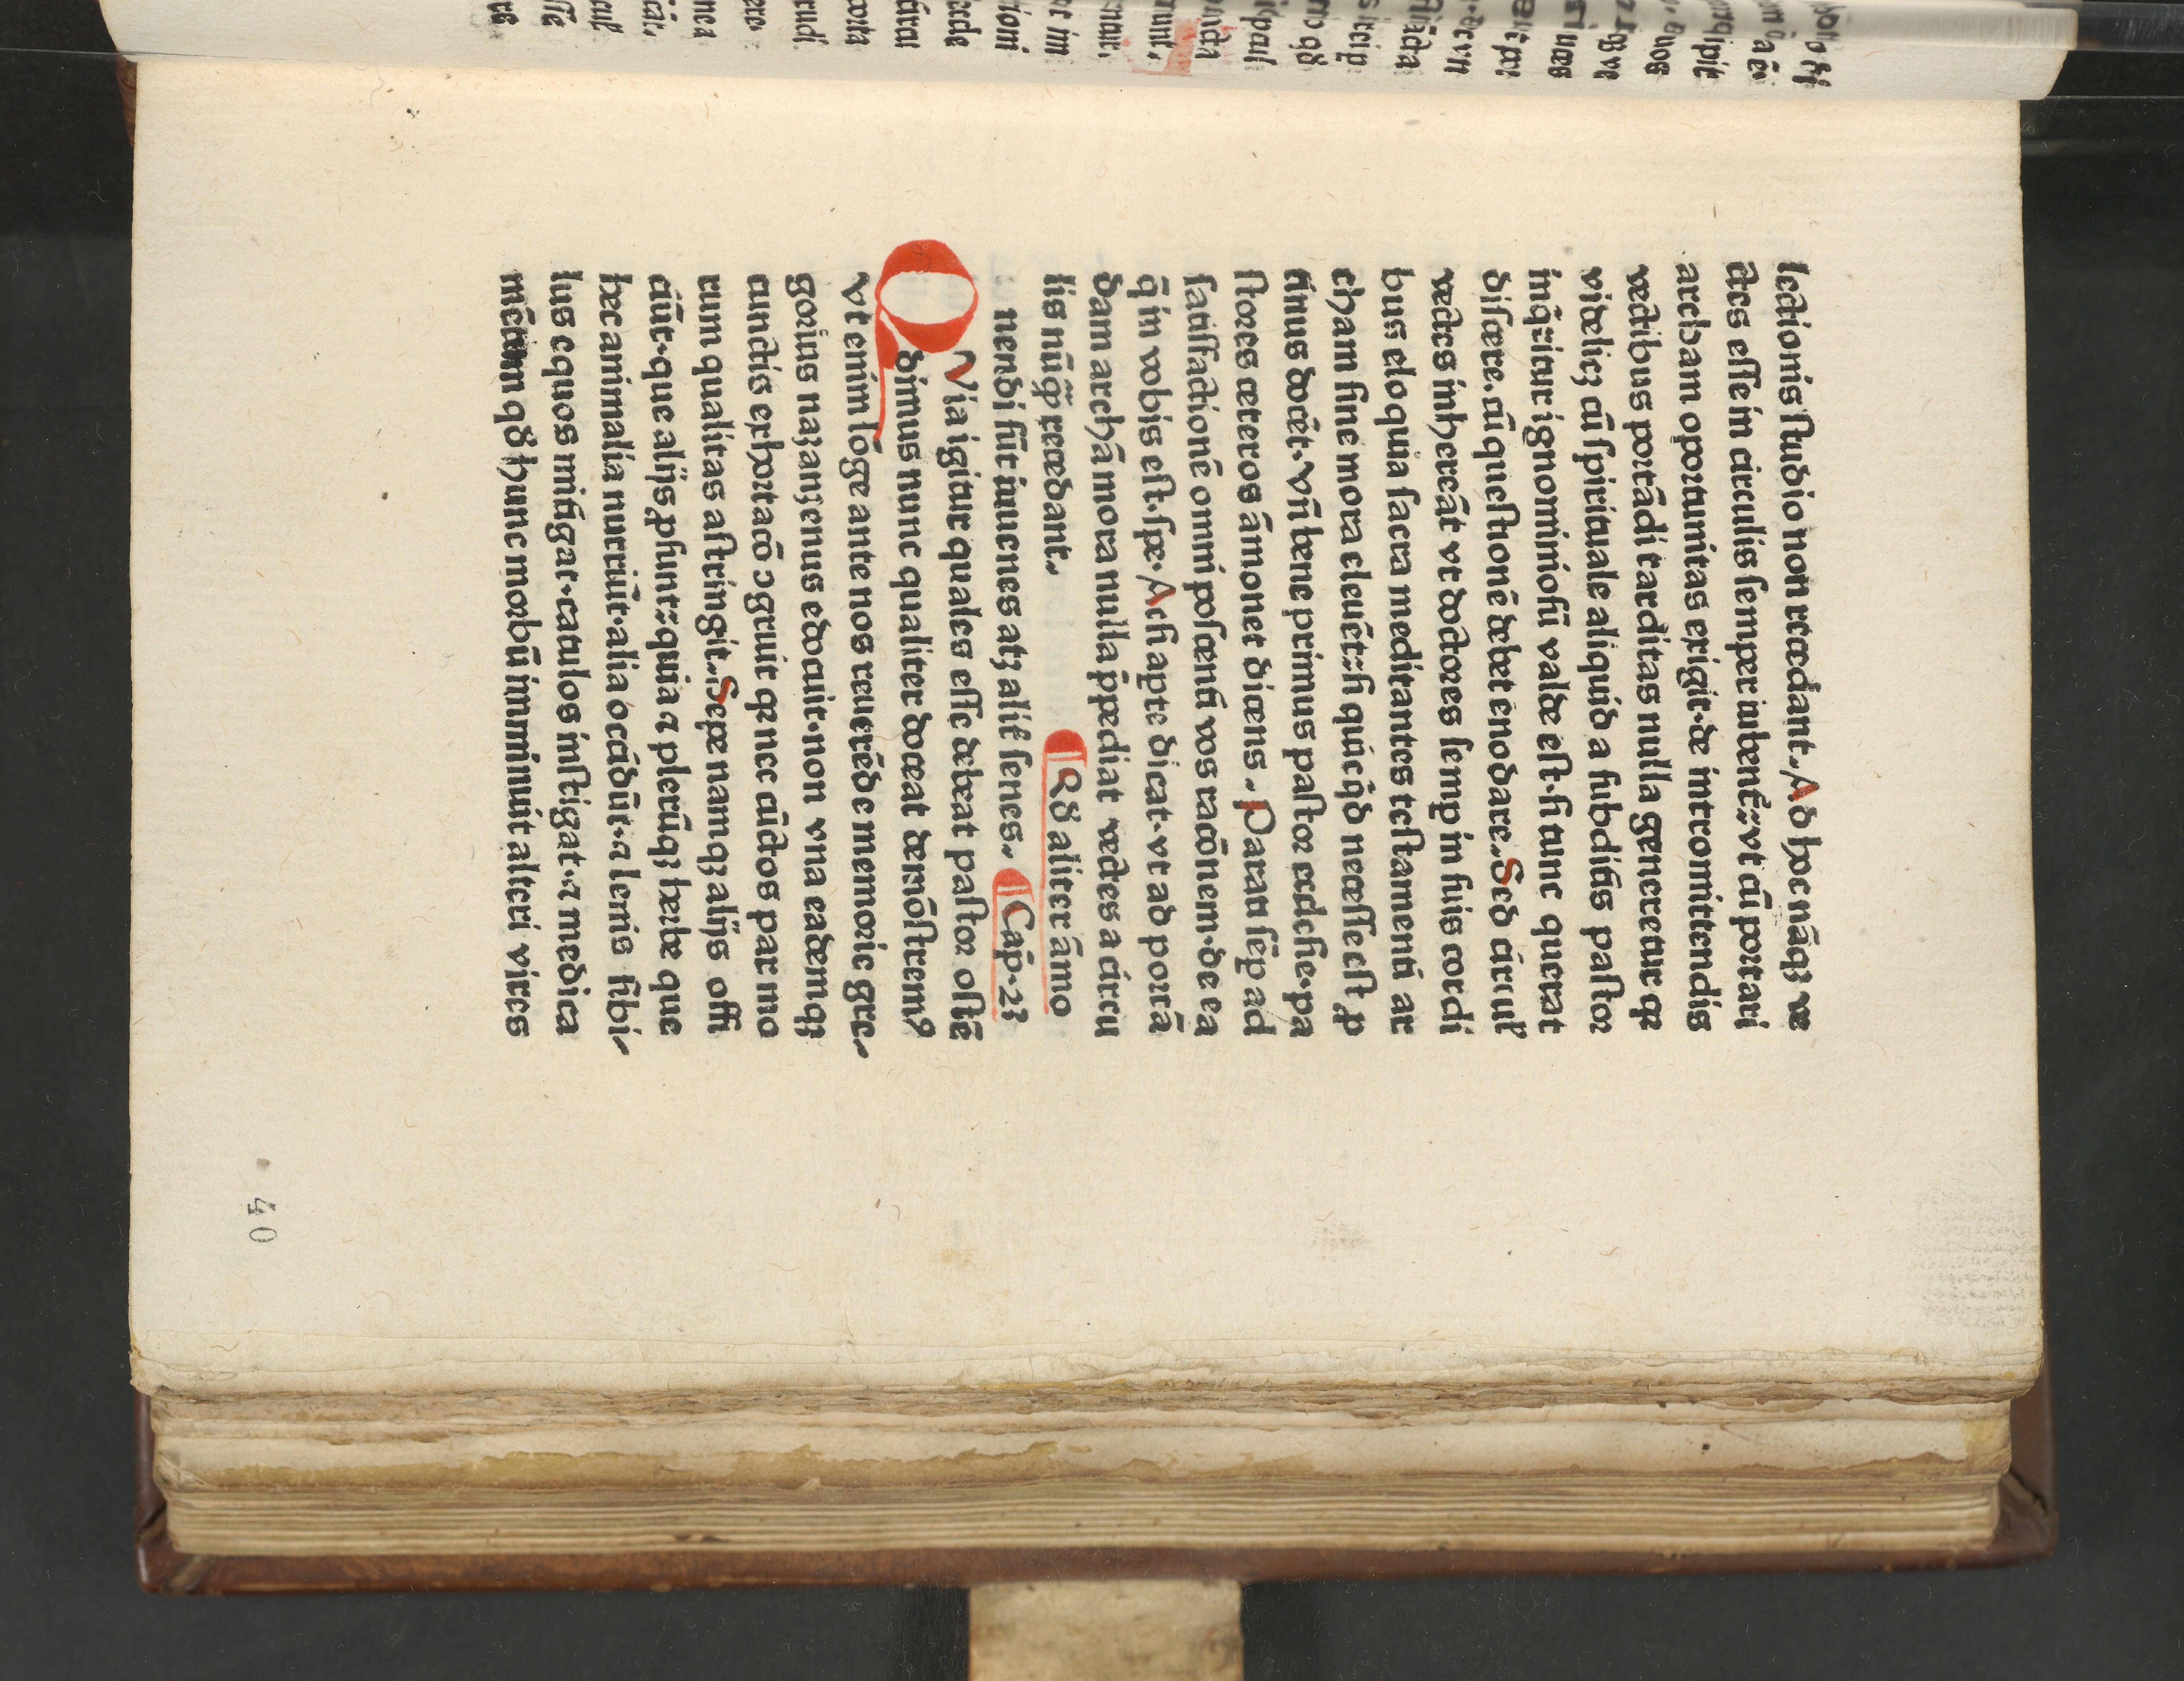 lectionis studio non recedant. Ad hoc nāqꝫ ve
ctes esse in circulis semper iubent᷑: vt cū portari
archam oportunitas exigit. de intromittendis
vectibus portādi tarditas nulla generetur qꝛ
videlicꝫ cū spirituale aliquid a subditis pastor
inq̄ritur ignominiosū valde est. si tunc querat
discere. cū questionē debet enodare. Sed circul᷒
vectes inhereāt vt doctores semꝑ in suis cordi
bus eloquia sacra meditantes testamenti ar
cham sine mora eleuēt: si quicq̄d necesse est ꝓ
tinus docēt. Vñ bene primus pastor ecclesie. pa
stores ceteros āmonet dicens. Parati sēꝑ ad
satisfactionē omni poscenti vos racōnem. de ea
q̄ in vobis est. spe. Acsi apte dicat. vt ad portā
dam archā mora nulla p̄pediat vectes a circu
lis nūq̄ꝫ recedant.
Qđ aliter āmo
nendi sūt iuuenes atꝫ alit̄ senes. Cap̄. 23
QVia igitur quales esse debeat pastor ostē
dimus nunc qualiter doceat demōstremꝰ
vt enim lōge ante nos reuerēde memorie gre
gorius naꝫanꝫenus edocuit. non vna eademqꝫ
cunctis exhortacō ↄgruit qꝛ nec cūctos par mo
rum qualitas astringit. Sepe namqꝫ alijs offi
ciūt. que alijs ꝓsunt: quia ⁊ plerūqꝫ herbe que
hec animalia nutriūt. alia occidūt. ⁊ lenis sibi
lus equos mitigat. catulos instigat. ⁊ medica
mētum qđ hunc morbū imminuit alteri vires
40